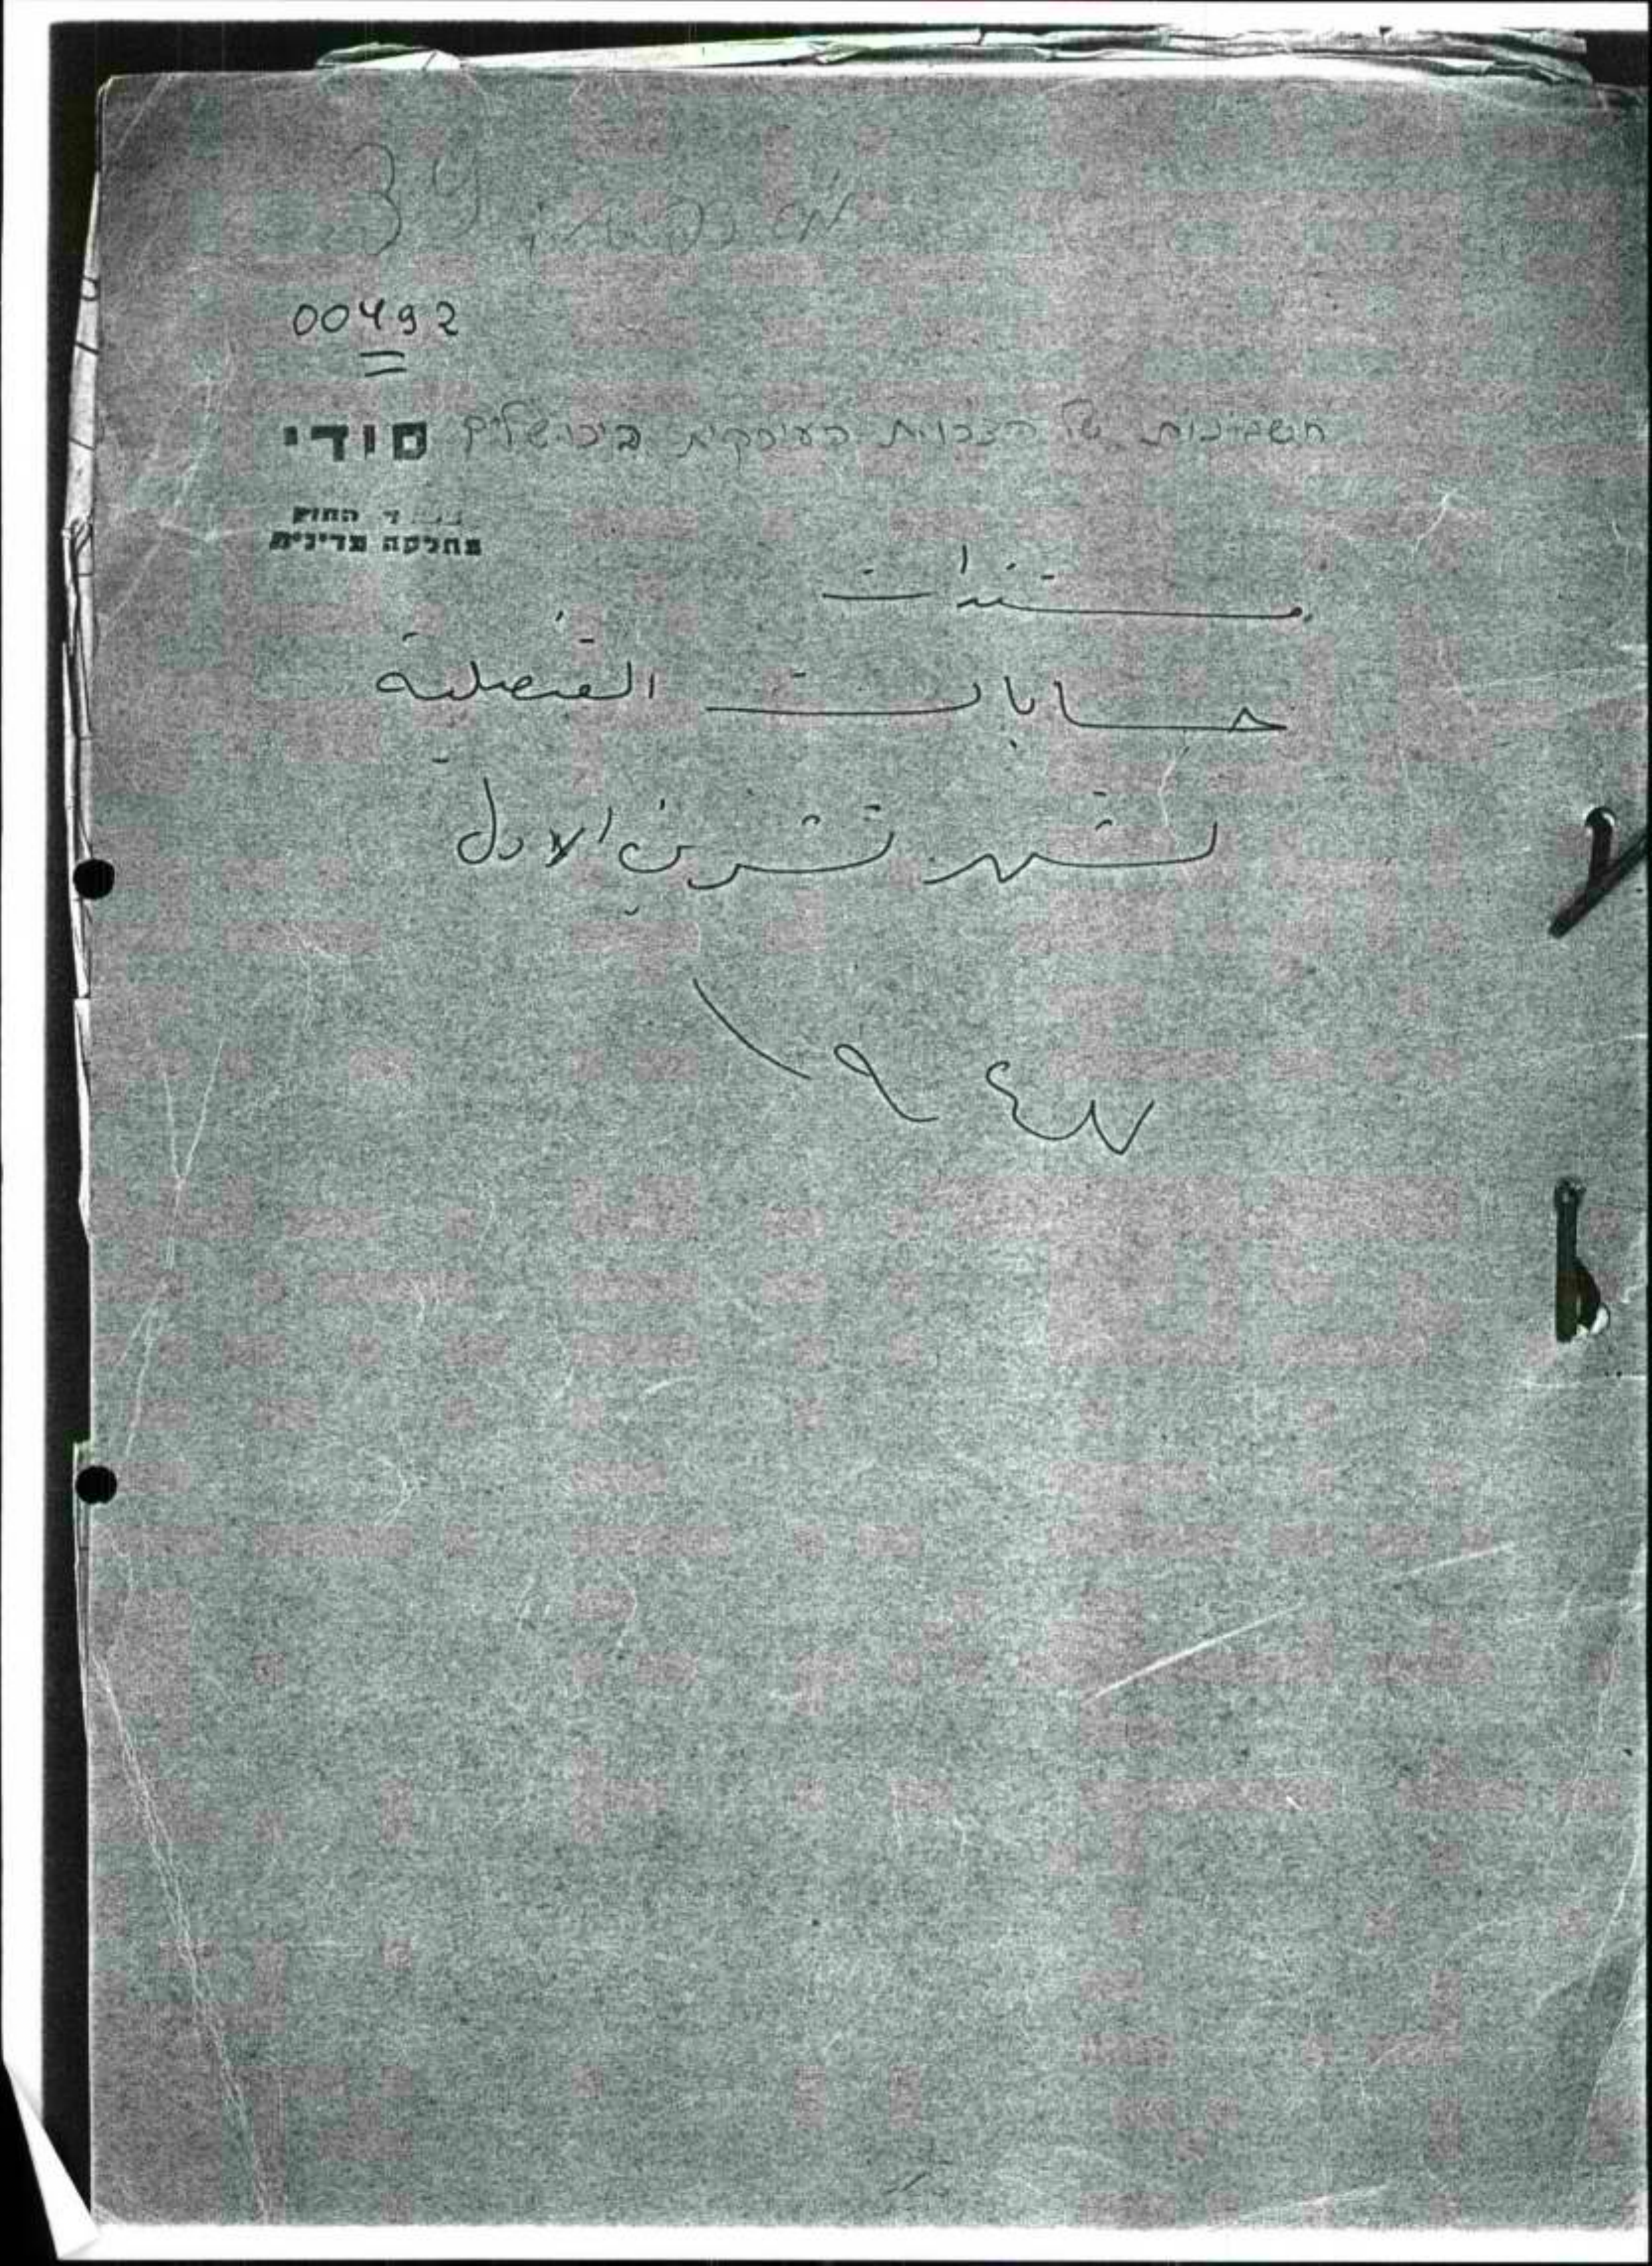 39
00492
חשבונות של הצירות העירקית בירושלים סודי
החוץ
מחלקה מדינית
مستندات
حسابات القنصلية
لشهر تشرين الاول
١٩٤٧